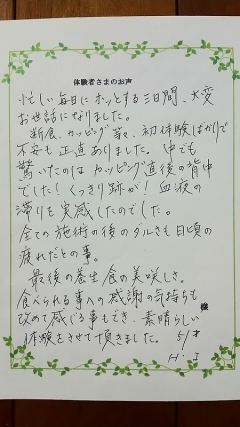 体験者さまのお声
忙しい毎日にホッとする三日間、大変
お世話になりました。
断食、カッピング等々、初体験ばかりで
不安も正直ありました。中でも
驚いたのはカッピング直後の背中
でした！くっきり跡が！血液の
濁りを実感したのでした。
全ての施術の後のダルさも日頃の
疲れだとの事。
最後の養生食の美味しさ。
食べられる事への感謝の気持ちも
改めて感じる事もでき、素晴らしい
体験をさせて頂きました。 51才
H・I 様